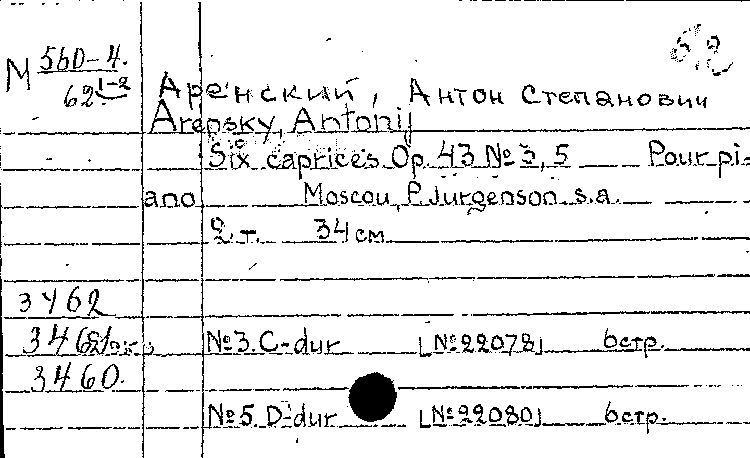 М 560-4.
62 1-2
Аренский, Антон Степанович
Arensky, Antonij
Six caprices. Op. 43 № 3, 5 Pour pi-
ano Moscou, P. Jurgenson s.a.
2 т. 34 см
3462
346
3460.
№3. C-dur [№22078] 6стр.
№5. D-dur [№22080] 6стр.